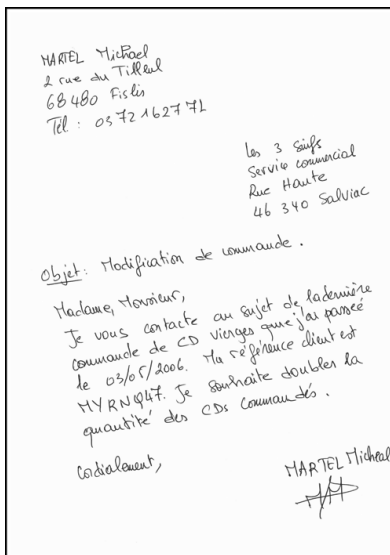 MARTEL Michael
2 rue du Tilleul
68 480 Fislis
Tél : 03 72 16 27 71
Les 3 Suifs
Service commercial
Rue Haute
46 340 Salviac
Objet : Modification de commande .
Madame, Monsieur,
Je vous contacte au sujet de la dernière
commande de CD vierges que j'ai passée
le 03/05/2006. Ma référence client est
MYRNQ47. Je souhaite doubler la
quantité des CDs commandés .
Cordialement,
MARTEL Micheal